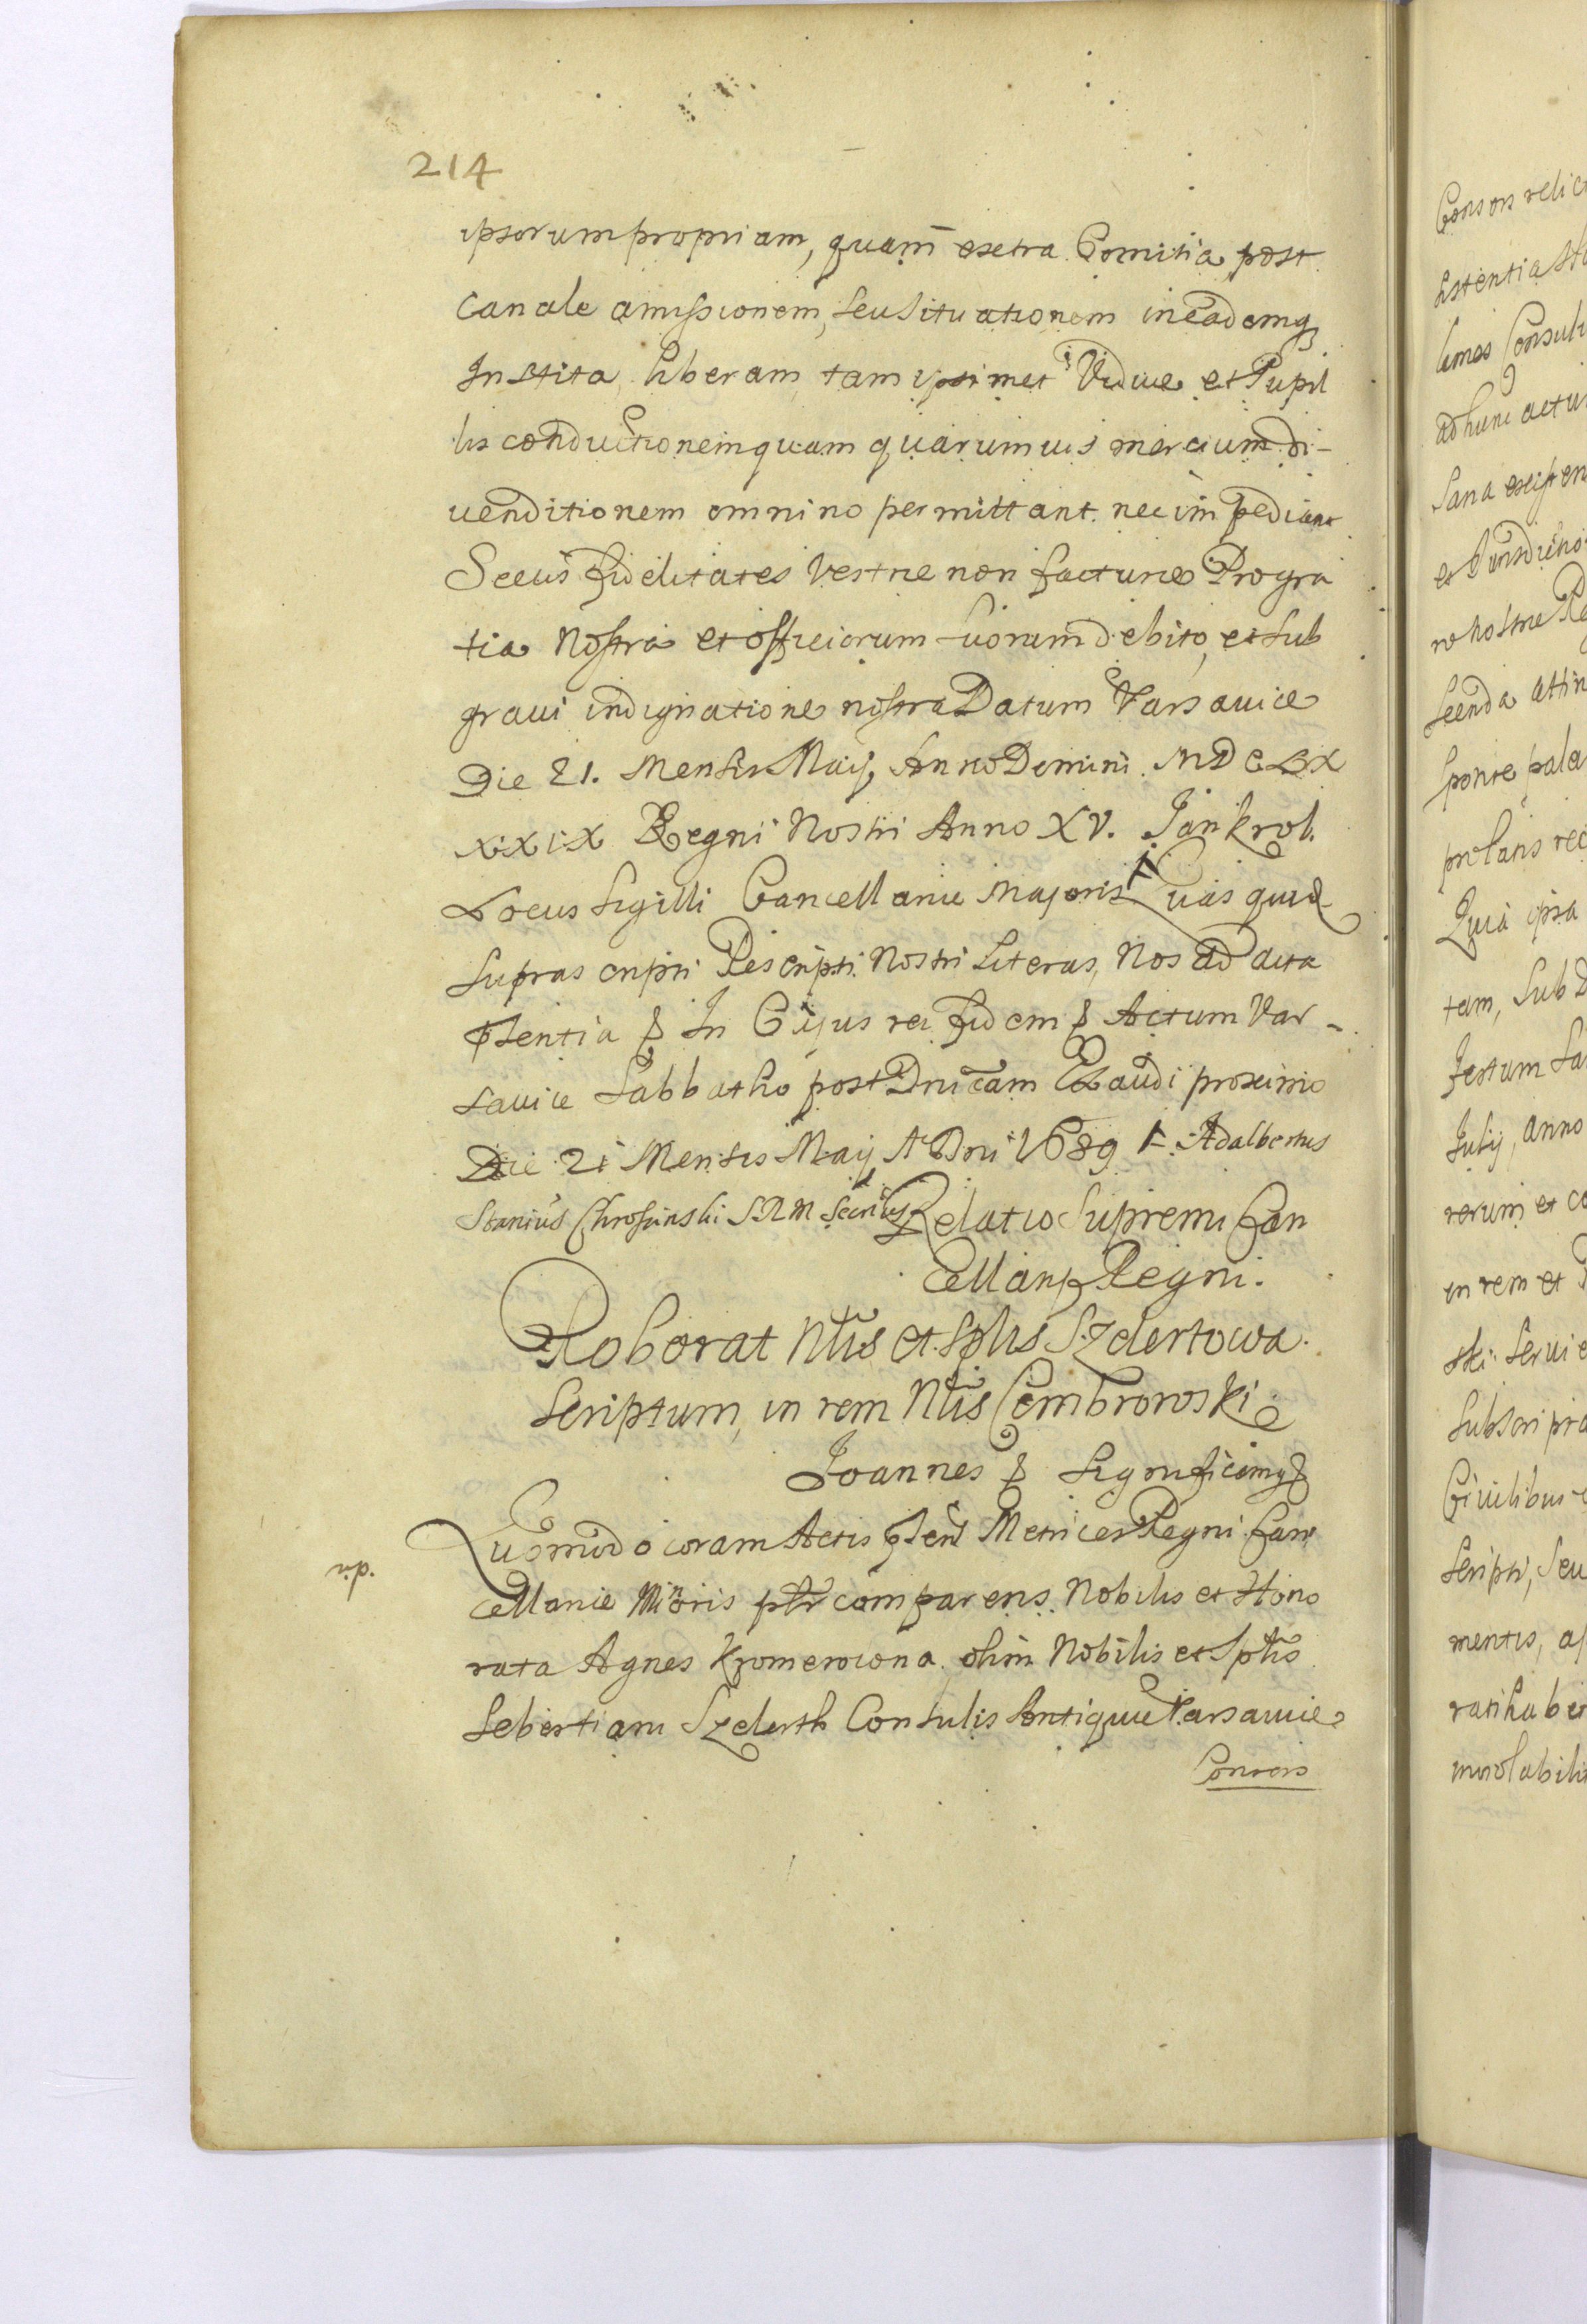 214
ipsorum propriam, quam extra Comitia post
Canale amissionem, seu situationem in eademq
Instita, liberam, tam ipsimet Viduæ et Pupil
lis conductionem quam quarumuis mercium di-
uenditionem omnino permittant. nec impediant
Secus fidelitates Vestræ non facturæ Pro gra
tia Nostra et officiorum suorum debito, et sub
graui indignatione nostra Datum Varsauiæ
Die 21. Mensis Maij, Anno Domini. MDCLX
XXIX Regni Nostri Anno XV. Jan Krol.
Locus Sigilli Cancellariæ Majoris Quas quid
suprascripti Rescripti Nostri Literas, Nos ad acta
In Cujus rei fidem Actum Var-
sauiæ Sabbatho post Dnicam Exaudi proximo
Die 21 Mensis Maij A Dni 1689 Adalbertus
Stanius Chroscinski S.R.M. Secrius Relatio Supremi Can
cellarij Regni.
Roborat Nlis et Splis Szelertowa
Scriptum, in rem Nlis Cembrowski
Joannes Significamus
Quomodo coram Actis Metrices Regni Can
cellariæ Minoris plr comparens Nobilis et Hono
rata Agnes Kromerowona olim Nobilis et Splis
Sebestiani Szelerth Consulis Antiquæ Varsauiæ
Consors
r.p.
Consors relict
Consul
ad hunc actu
Sana
ro nostre Re
attin
sponte pala
Quia ipsa
tam, Sub
festum
July, anno
rerum et co
in rem et
Ciuilibus
Scripti, Seu
mentis, a
ratihabi
inuiolabili